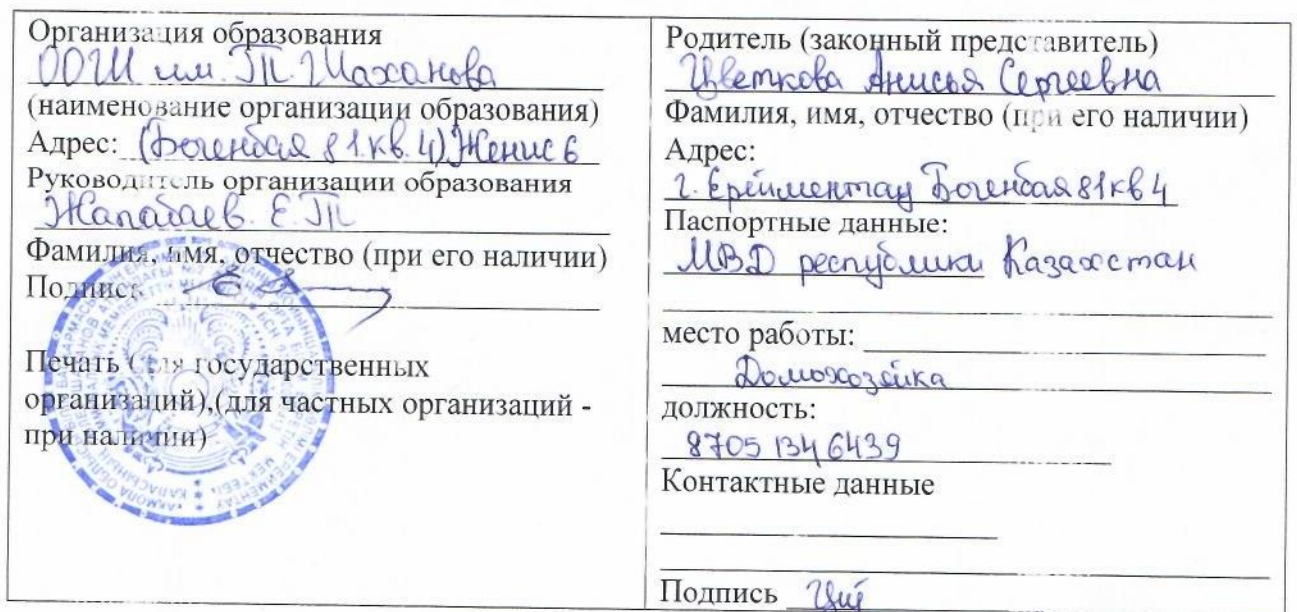 Организация образования
ООШ им. Т. Шаханова
(наименование организации образования)
Адрес: (Богенбая 81. кв. 4) Женис 6
Руководитель организации образования
Жапабаев. Е. Т
Фамилия, имя, отчество (при его наличии)
Подпись
Печать (для государственных
организаций),(для частных организаций -
при наличии)
Родитель (законный представитель)
Цветкова Анисья Сергеевна
Фамилия, имя, отчество (при его наличии)
Адрес:
г. Ерейментау Богенбая 81 кв 4
Паспортные данные:
МВД республики Казахстан
место работы:
Домохозяйка
должность:
8705 134 6439
Контактные данные
Подпись